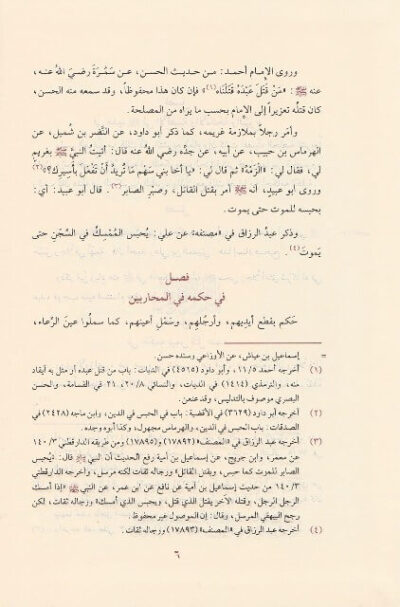 وروى الإمام أحمد: من حديث الحسن، عن سَمُرَةَ رضيَ اللهُ عنه،
عنه ﷺ: «مَنْ قَتَلَ عَبْدَهُ قَتَلْنَاه»(١) فإن كان هذا محفوظاً، وقد سمعه منه الحسن،
كان قتلُه تعزيراً إلى الإِمام بحسب ما يراه من المصلحة.
وأمَر رجلاً بملازمة غريمه، كما ذكر أبو داود، عن النَّضر بن شُميل، عن
الهِرماس بن حبيب، عن أبيه، عن جدِّه رضي اللهُ عنه قال: أتيتُ النبيَّ ﷺ بغريمٍ
لي، فقال لي: «الْزَمْهُ» ثم قال لي: «يا أخا بني سَهْمٍ مَا تُرِيدُ أَنْ تَفْعَلَ بِأَسِيرِكَ؟»(٢)
وروى أبو عبيد، أنه ﷺ أمر بقتل القاتل، وصَبْرِ الصابر(٣). قال أبو عبيد: أي:
بحبسه للموت حتى يموت.
وذكر عبدُ الرزاق في «مصنفه» عن علي: يُحبَس المُمْسِكُ في السِّجْنِ حتى
يَموتَ(٤).
فصل
في حكمه في المحاربين
حَكم بقطع أيديهم، وأرجُلهم، وسَمْلِ أعينهم، كما سملُوا عينَ الرِّعاء،
= إسماعيل بن عياش، عن الأوزاعي وسنده حسن.
(١) أخرجه أحمد ١١/٥، وأبو داود (٤٥١٥) في الديات: باب من قتل عبده أو مثل به أيقاد
منه، والترمذي (١٤١٤) في الديات، والنسائي ٢٠/٨، ٢١ في القسامة، والحسن
البصري موصوف بالتدليس، وقد عنعن.
(٢) أخرجه أبو داود (٣٦٢٩) في الأقضية: باب في الحبس في الدين، وابن ماجه (٢٤٢٨) في
الصدقات: باب الحبس في الدين، والهرماس مجهول، وكذا أبوه وجده.
(٣) أخرجه عبد الرزاق في «المصنف» (١٧٨٩٢) و(١٧٨٩٥) ومن طريقه الدارقطني ١٤٠/٣
عن معمر، وابن جريج، عن إسماعيل بن أمية رفع الحديث أن النبي ﷺ قال: «يحبس
الصابر للموت كما حبس، ويقتل القاتل» ورجاله ثقات لكنه مرسل، وأخرجه الدارقطني
١٤٠/٣ من حديث إسماعيل بن أمية عن نافع عن ابن عمر، عن النبي ﷺ «إذا أمسك
الرجل الرجل، وقتله الآخر يقتل الذي قتل، ويحبس الذي أمسك» ورجاله ثقات، لكن
رجح البيهقي المرسل، وقال: إن الموصول غير محفوظ.
(٤) أخرجه عبد الرزاق في «المصنف» (١٧٨٩٣) ورجاله ثقات.
٦